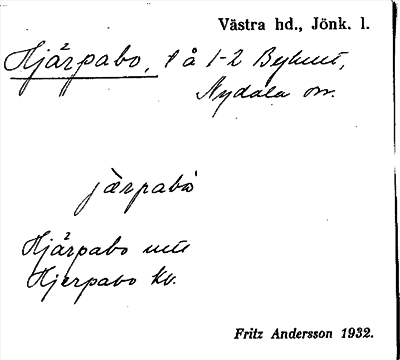 Västra hd., Jönk. l.
Hjärpabo, t å 1-2
Nydala sn.
jèrpabo
Hjärpabo
Hjerpabo kv.
Fritz Andersson 1932.